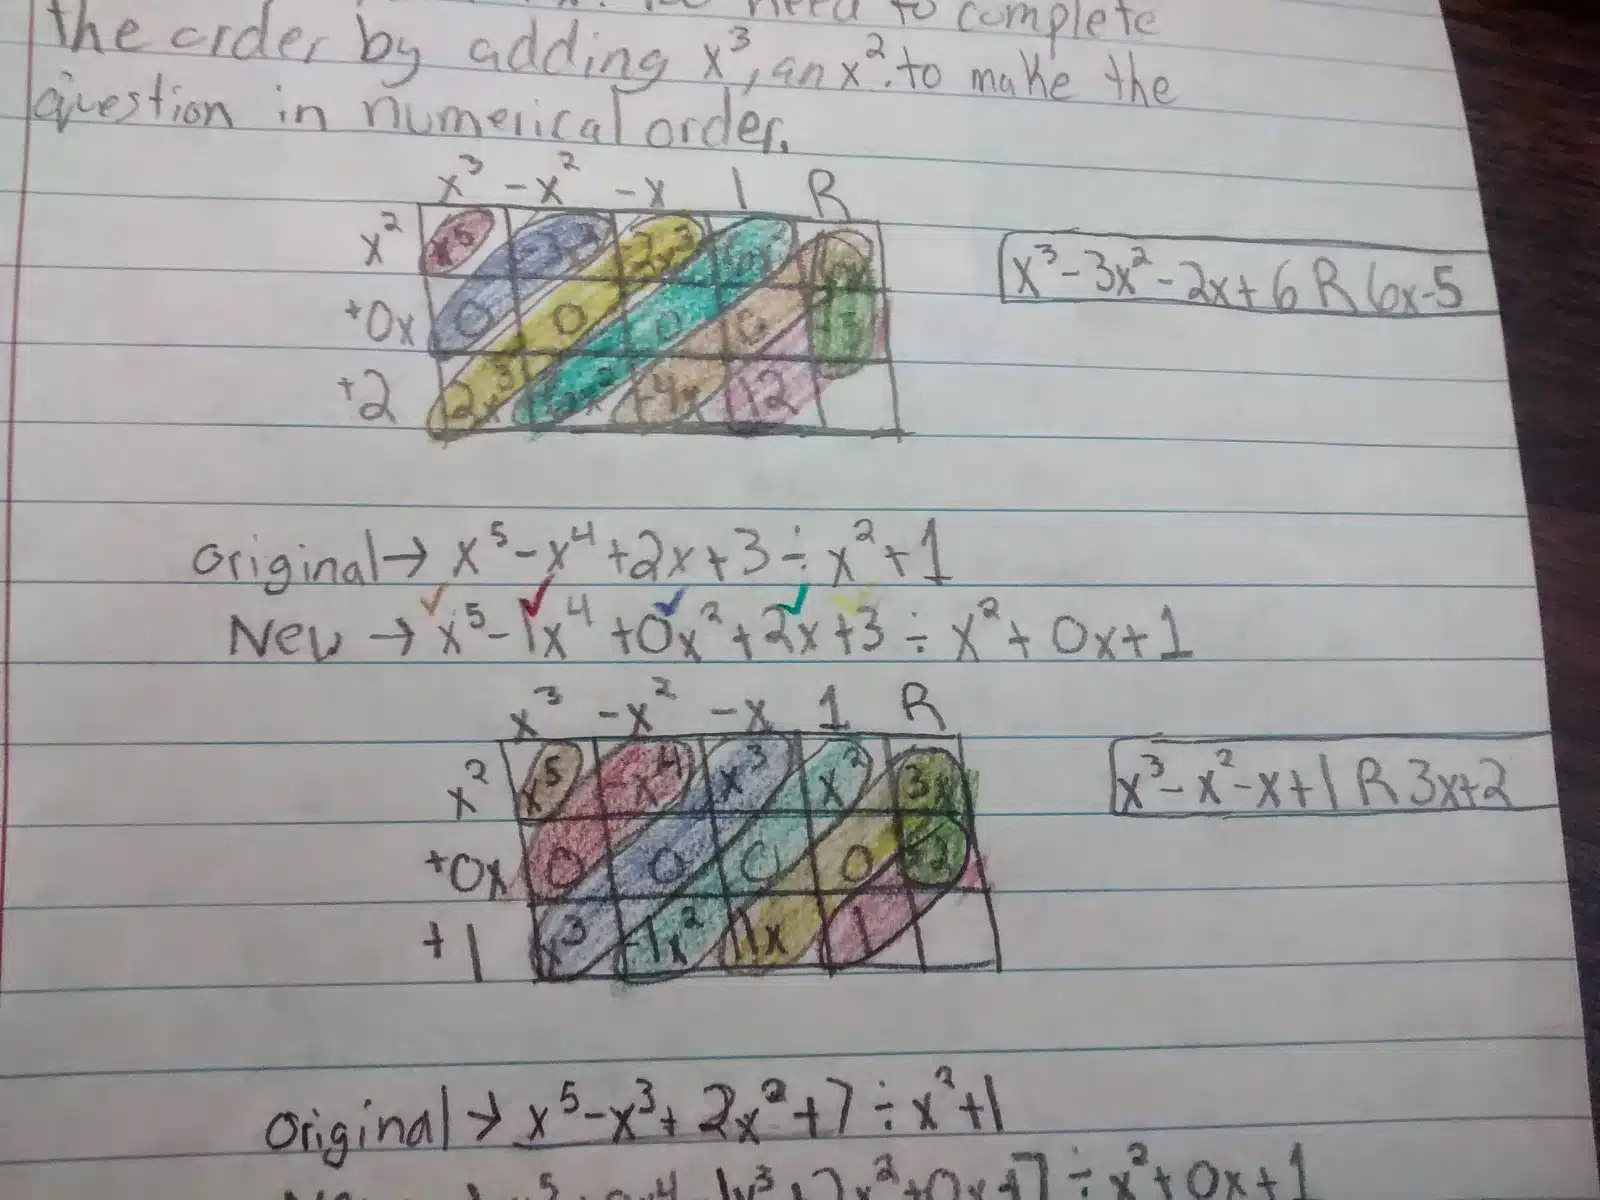 need to complete
the order by adding x³, an x². to make the
question in numerical order.
x³ -x² -x 1 R
x² x⁵
+0x 0 0 0 0
+2 2x³ -4x 12
x³-3x²-2x+6 R 6x-5
Original→ x⁵-x⁴+2x+3÷x²+1
New → x⁵-1x⁴+0x²+2x+3÷x²+0x+1
x³ -x² -x 1 R
x² x⁵ -x⁴ x³ x² 3x
+0x 0 0 0 0
+1 x³ -1x² 1x 1
x³-x²-x+1 R 3x+2
Original→ x⁵-x³+2x²+7÷x²+1
÷x²+0x+1